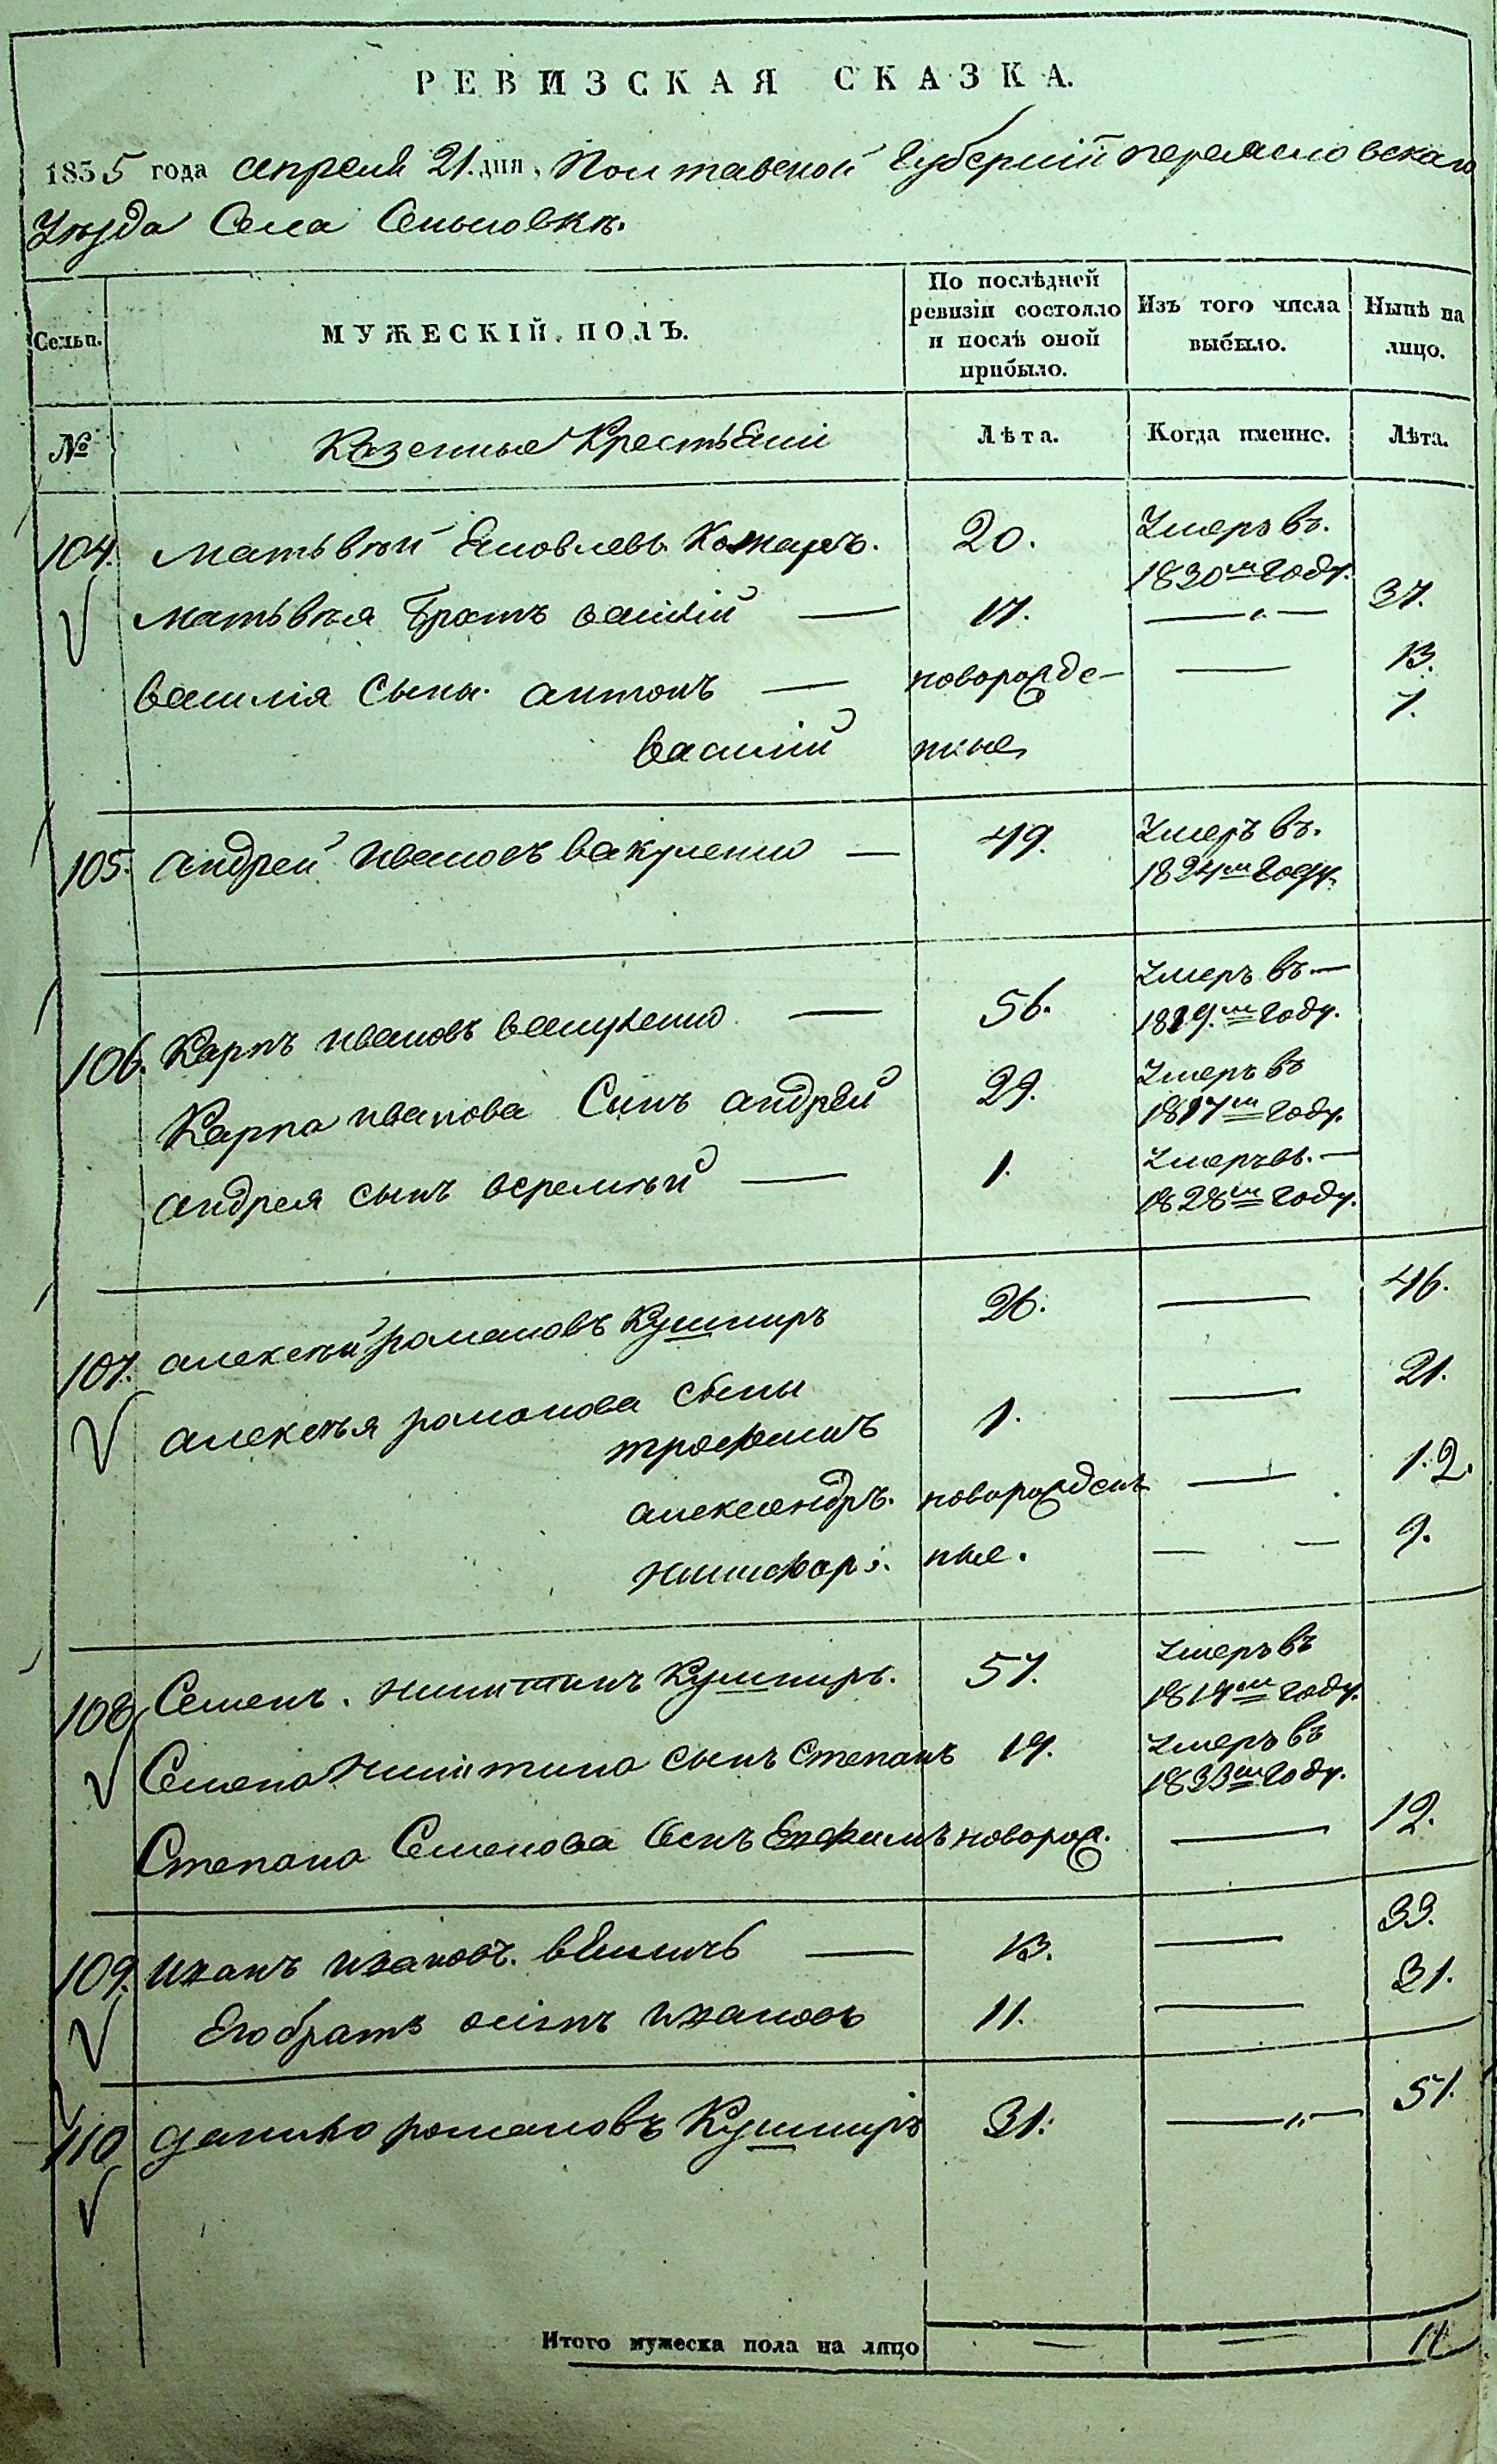 РЕВИЗСКАЯ СКАЗКА.
1835 года апреля 21. дня, Полтавской Губерніи переяславскаго
Уѣзда Села Сеньковкѣ.
Сельп. МУЖЕСКІЙ ПОЛЪ. По послѣдней ревизіи состояло и послѣ оной прибыло. Изъ того числа выбыло. Нынѣ на лицо.
№ Казенные Крестьяни Лѣта. Когда именно. Лѣта.
104. Матьвѣй Яковлевъ Комаръ. 20. Умеръ въ.
1830м году.
Матьвѣя Братъ василій — 17. —„— 37.
василія Сыны. антонъ — новорожде- — 13.
василій нные 7.
105. андрей Ивановъ вакуленко — 49. Умеръ въ.
1824м году.
106. Карпъ ивановъ вакуленко — 56. Умеръ въ —
1819.м году.
Карпа иванова Сынъ андрей 29. Умеръ въ
1817м году.
андрея сынъ веремѣй — 1. Умеръ въ. —
1828м году.
107. алексѣй романовъ Кушниръ 26. — 46.
алексѣя романова сыны
трофимъ 1. — 21.
александръ. новорожден — 1.2.
никифоръ. ные. — — 9.
108. Семенъ. никитинъ Кушниръ. 57. Умеръ въ
1819м году.
Семена никитина сынъ Степанъ 19. Умеръ въ
1833м году.
Степана Семенова Сынъ Ефимъ новорож. — 12.
109. иванъ ивановъ. — 13. — 33.
Его братъ осипъ ивановъ 11. — 31.
110 данило романовъ Кушниръ 31. —„— 51.
Итого мужеска пола на лицо — — 11